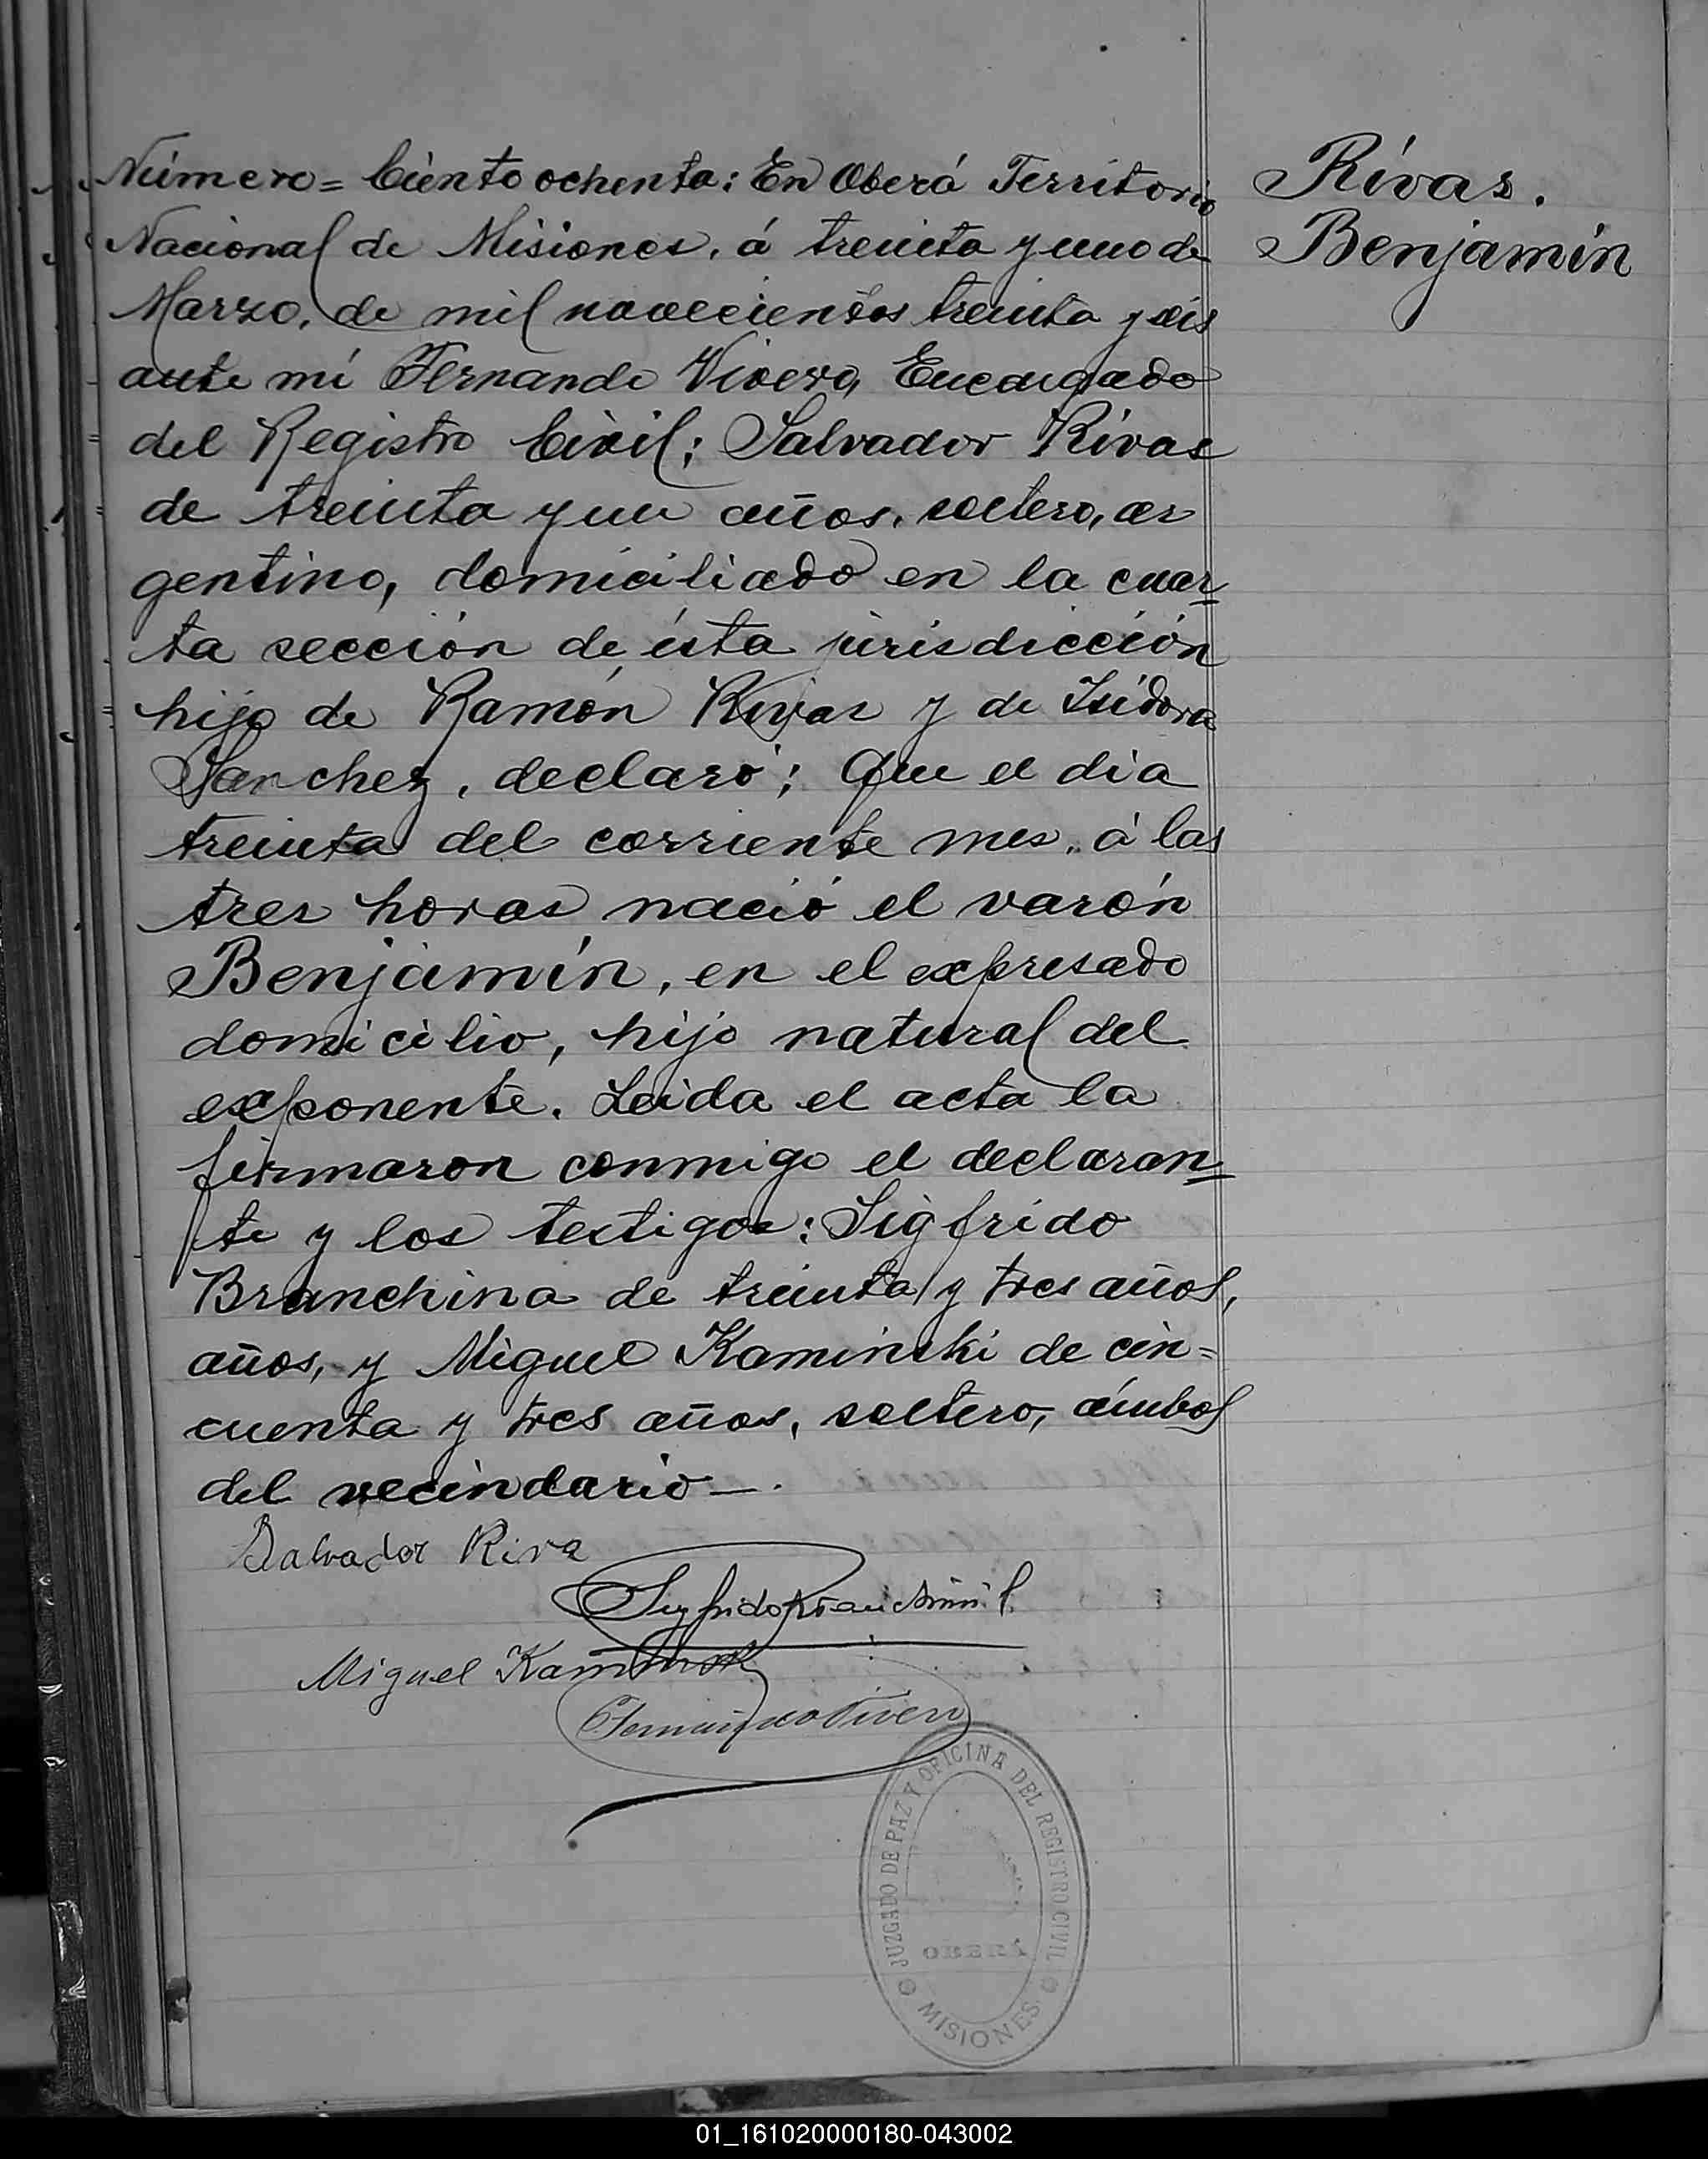 Rivas.
Benjamin
Número = Ciento ochenta: En Oberá Territorio
Nacional de Misiones, á treinta y uno de
Marzo, de mil novecientos treinta y seis
ante mí Fernando Vivero, Encargado
del Registro Civil; Salvador Rivas
de treinta y un años, soltero, ar
gentino, domiciliado en la cuar-
ta sección de ésta jurisdicción
hijo de Ramón Rivas y de Isidora
Sanchez, declaró; Que el dia
treinta del corriente mes, á las
tres horas nació el varón
Benjamín, en el expresado
domicilio, hijo natural del
exponente. Leida el acta la
firmaron conmigo el declaran-
te y los testigos: Sigfrido
Branchina de treinta y tres años,
años, y Miguel Kaminski de cin=
cuenta y tres años, soltero, ámbos
del vecindario—.
Salvador Riva
Miguel Kaminski
JUZGADO DE PAZ Y OFICINA DEL REGISTRO CIVIL
OBERÁ
MISIONES
01_161020000180-043002